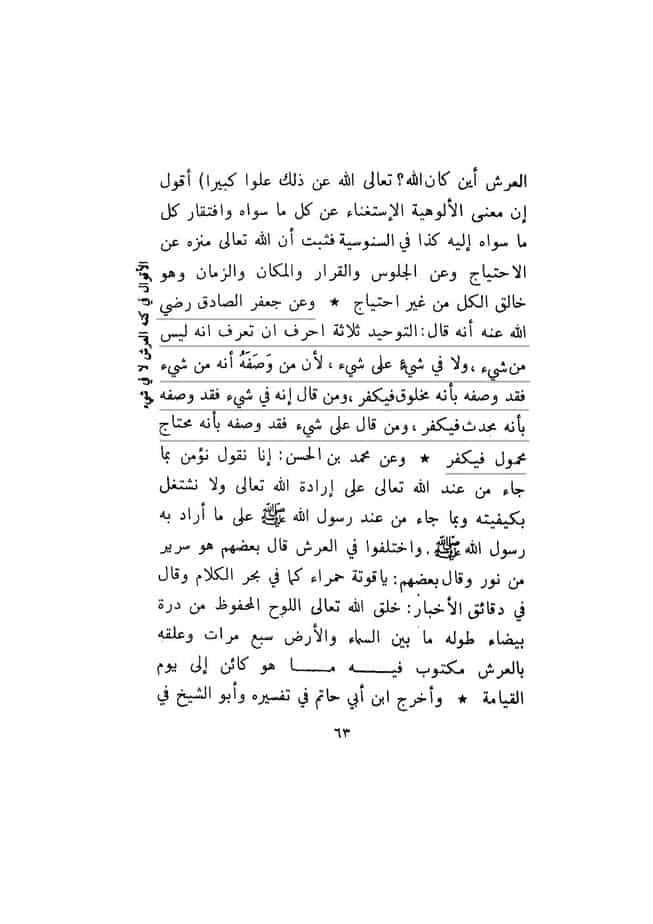 العرش أين كان الله؟ تعالى الله عن ذلك علوا كبيرا) أقول
إن معنى الألوهية الإستغناء عن كل ما سواه وافتقار كل
ما سواه إليه كذا في السنوسية فثبت أن الله تعالى منزه عن
الاحتياج وعن الجلوس والقرار والمكان والزمان وهو
خالق الكل من غير احتياج ★ وعن جعفر الصادق رضي
الله عنه أنه قال: التوحيد ثلاثة احرف ان تعرف انه ليس
من شيء ، ولا في شيءٍ على شيء ، لأن من وَصَفَهُ أنه من شيء
فقد وصفه بأنه مخلوق فيكفر ، ومن قال إنه في شيء فقد وصفه
بأنه محدث فيكفر ، ومن قال على شيء فقد وصفه بأنه محتاج
محمول فيكفر ★ وعن محمد بن الحسن: إنا نقول نؤمن بما
جاء من عند الله تعالى على إرادة الله تعالى ولا نشتغل
بكيفيته وبما جاء من عند رسول الله ﷺ على ما أراد به
رسول الله ﷺ. واختلفوا في العرش قال بعضهم هو سرير
من نور وقال بعضهم: ياقوتة حمراء كما في بحر الكلام وقال
في دقائق الأخبار: خلق الله تعالى اللوح المحفوظ من درة
بيضاء طوله ما بين السماء والأرض سبع مرات وعلقه
بالعرش مكتوب فيــــه مــــا هو كائن إلى يوم
القيامة ★ وأخرج ابن أبي حاتم في تفسيره وأبو الشيخ في
الأقوال في كنه العرش لا في شيء
٦٣